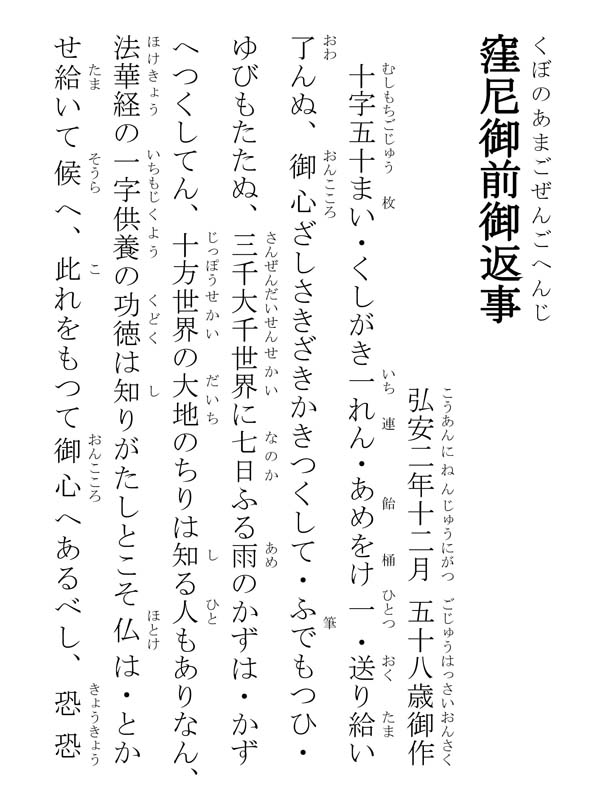 くぼのあまごぜんごへんじ
窪尼御前御返事
こうあんにねんじゅうにがつ ごじゅうはっさいおんさく
弘安二年十二月 五十八歳御作
むしもちごじゅう 枚 いち 連 飴 桶 ひとつ おく たま
十字五十まい・くしがき一れん・あめをけ一・送り給い
おわ おんこころ 筆
了んぬ、御心ざしさきざきかきつくして・ふでもつひ・
さんぜんだいせんせかい なのか あめ
ゆびもたたぬ、三千大千世界に七日ふる雨のかずは・かず
じっぽうせかい だいち し ひと
へつくしてん、十方世界の大地のちりは知る人もありなん、
ほけきょう いちもじくよう くどく し ほとけ
法華経の一字供養の功徳は知りがたしとこそ仏は・とか
たま そうら こ おんこころ きょうきょう
せ給いて候へ、此れをもつて御心へあるべし、恐恐